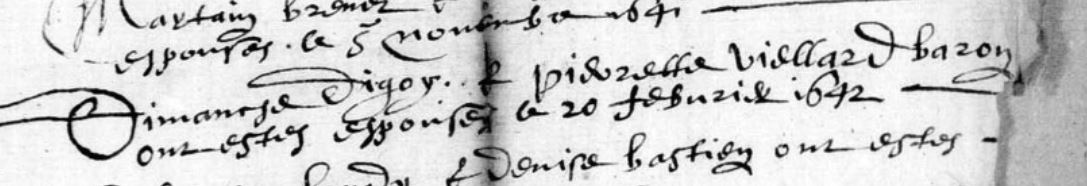 Martain
espouses. le 5 novembre 1641
Dimanche Digoy. & pierrette viellard baron
ont estes espouses le 20 feburier 1642
& denise bastien ont estes -